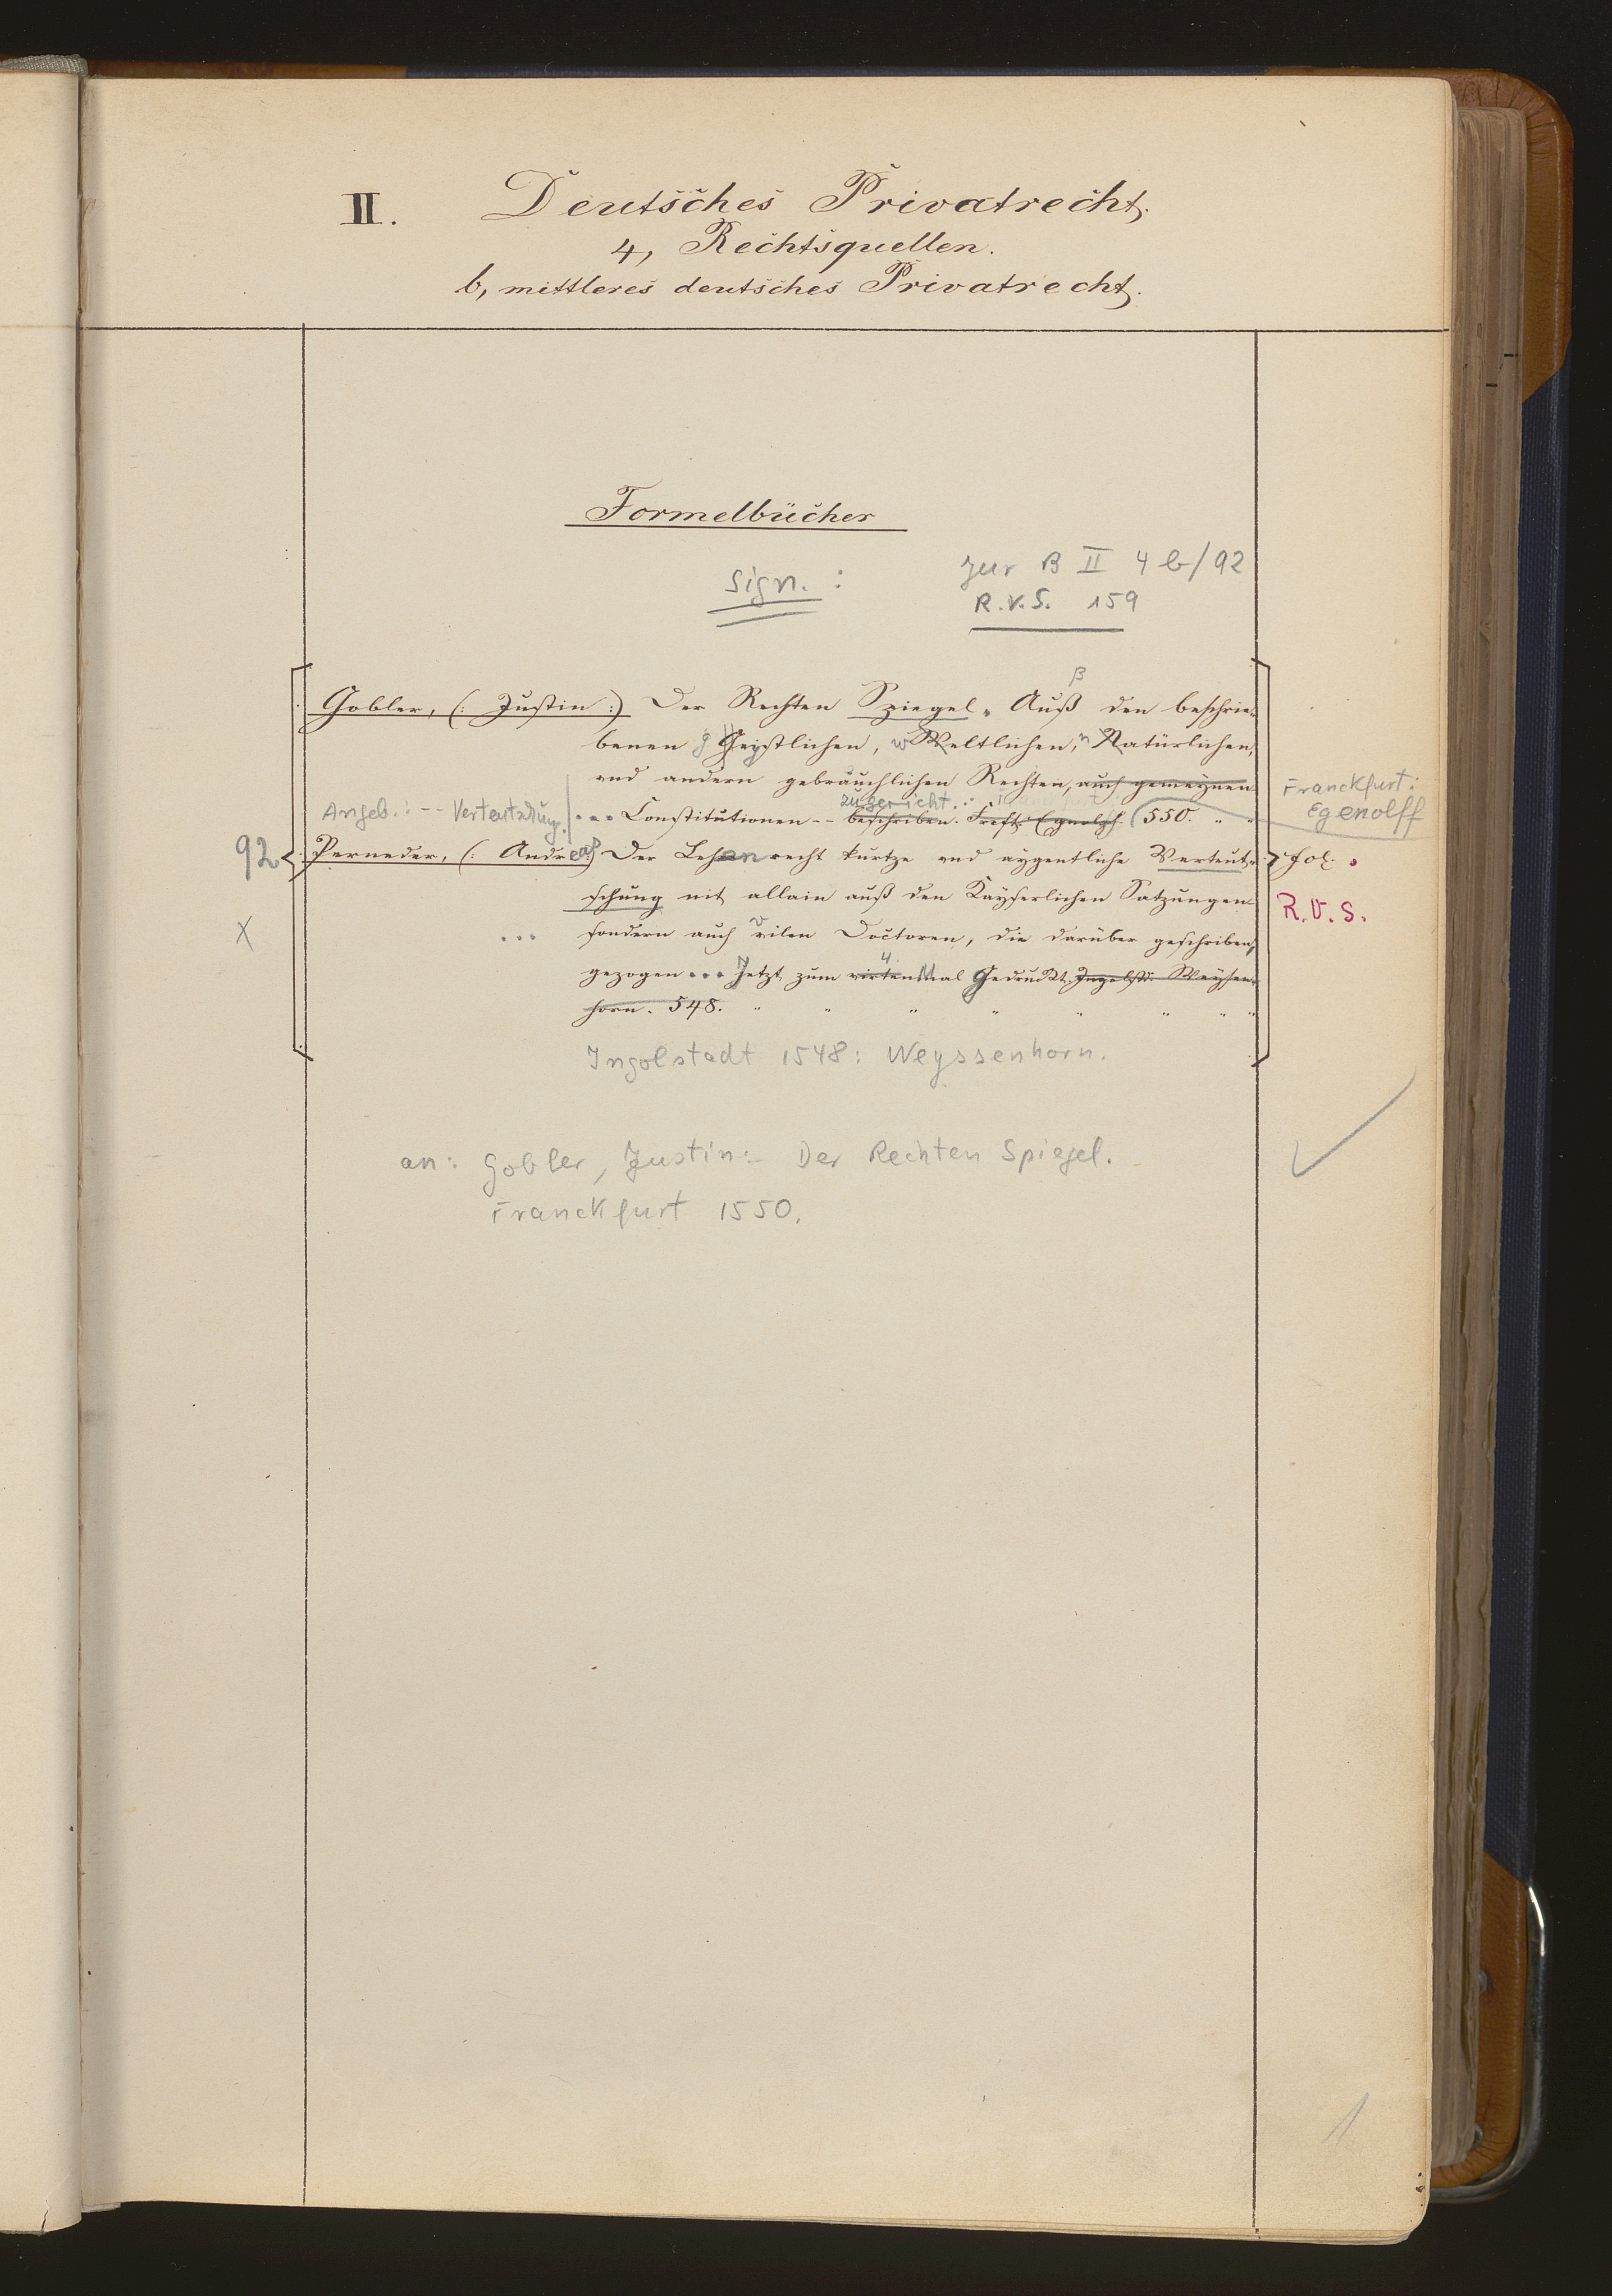 II. Deutsches Privatrecht.
4, Rechtsquellen.
b, mittleres deutsches Privatrecht.
Formelbücher
Sign.: zur B II 4 b/92
R.V.S. 159
ß
Gobler, (: Justin :) Der Rechten Spiegel. Auß den beschrie-
benen g Geystlichen, w Weltlichen, n Natürlichen,
vnd andern gebräuchlichen Rechten, auch gemeynen
Franckfurt:
zugericht.:
Angeb.: -- Verteutschung. ... Constitutionen -- beschriben. Frcft. Egnolph. (550. " "
Egenolff
92 Perneder, (: Andreas :) Der Lehenrecht kurtze vnd aygentliche Verteut- fol.
schung nit allain auß den Kayserlichen Satzungen
R.V.S.
X ... sondern auch vilen Doctoren, die darüber geschriben,
4.
gezogen ... Jetzt zum virten Mal Gedruckt. Ingolst. Weyssen-
horn. 548. " " " " " " " "
Ingolstadt 1548: Weyssenhorn.
an: Gobler, Justin: Der Rechten Spiegel.
Franckfurt 1550.
1